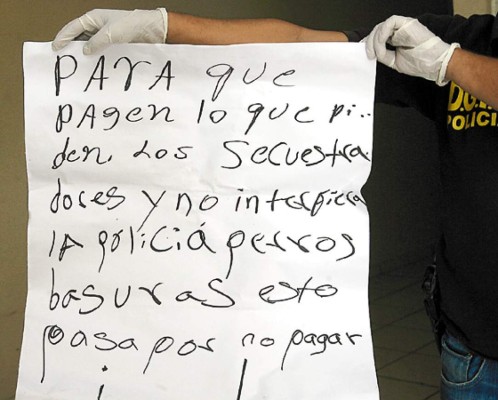 PARA que
PAgen lo que pi..
den. Los Secuestra
dores y no interfiera
lA policiá perros
basuras esto
pasa por no pagar
POLICI